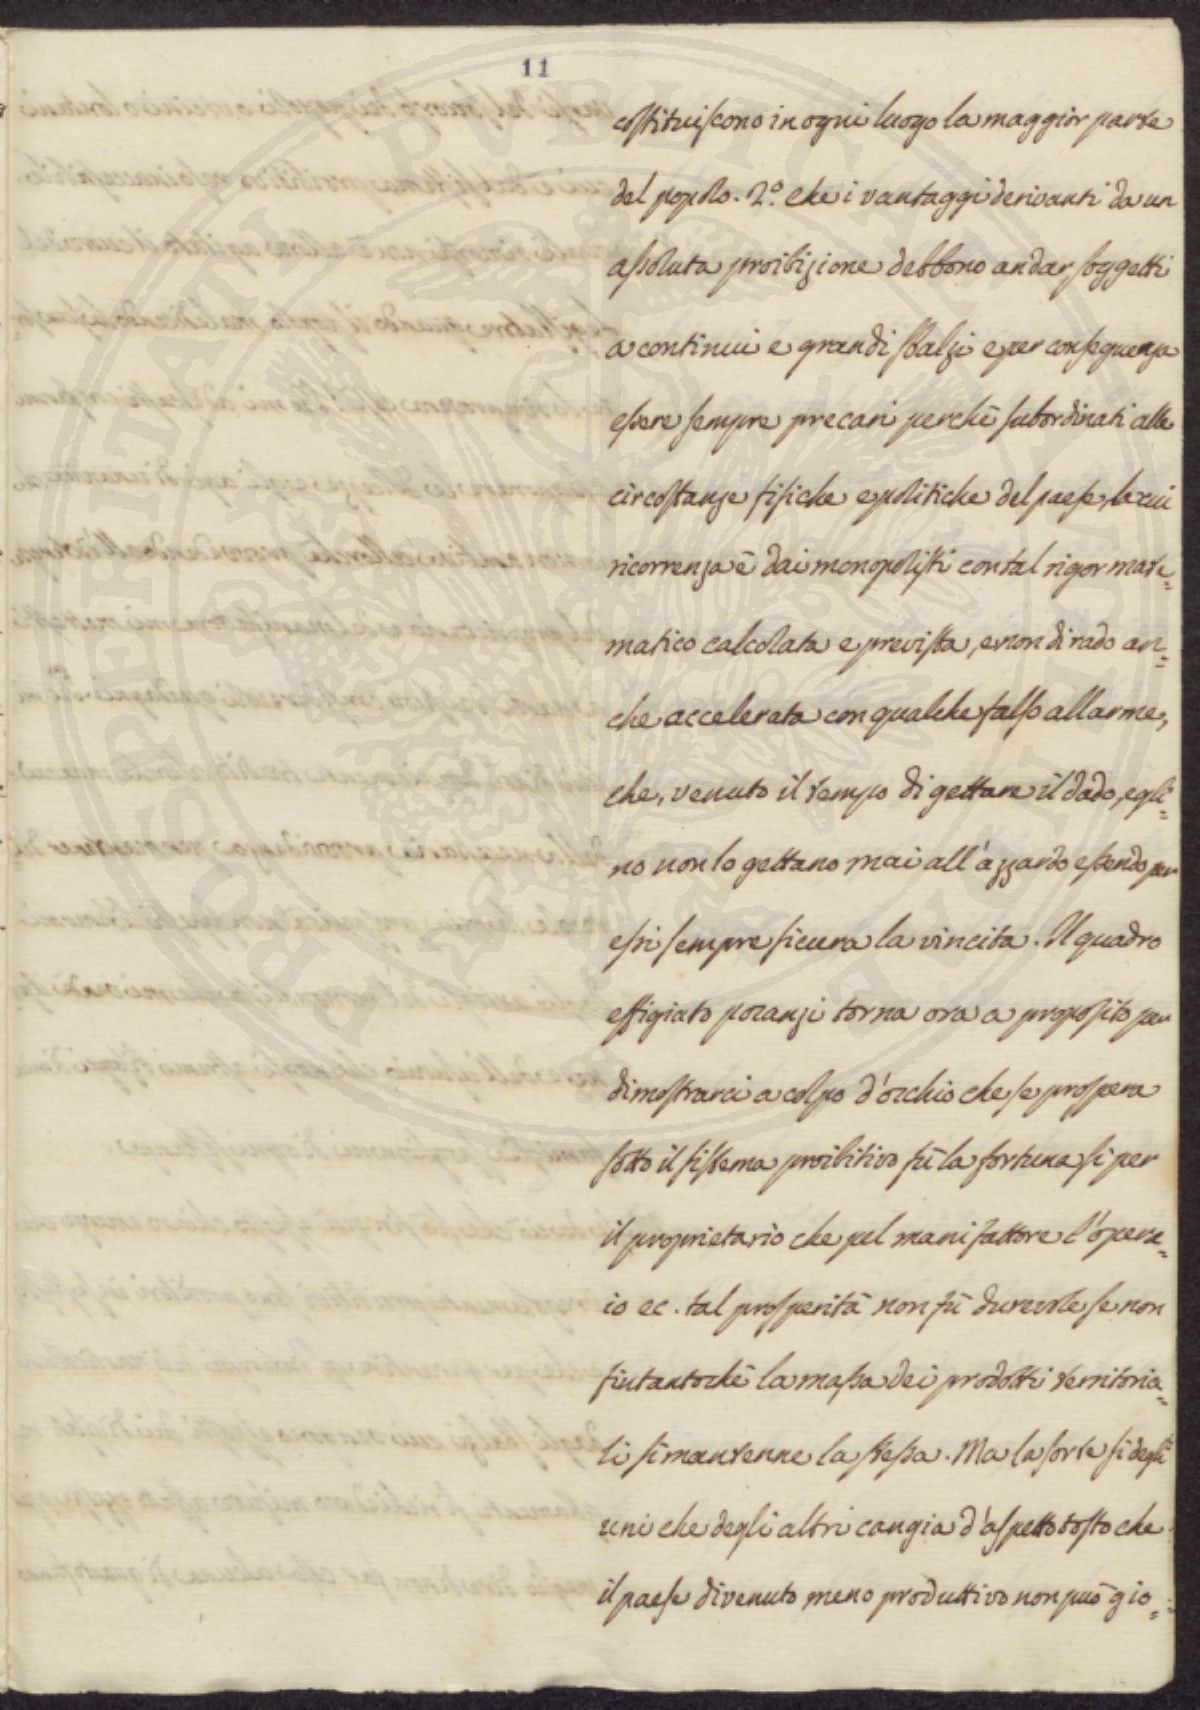 11
costituiscono in ogni luogo la maggior parte
del popolo. 2.° che i vantaggi derivanti da un
assoluta proibizione debbono andar soggetti
a continui e grandi sbalzi e per conseguenza
essere sempre precari perchè subordinati alle
circostanze fisiche e politiche del paese, la cui
ricorrenza è dai monopolisti con tal rigor mate=
matico calcolata e prevista, e non di rado an=
che accelerata con qualche falso allarme,
che, venuto il tempo di gettare il dado, egli=
no non lo gettano mai all'azzardo essendo per
essi sempre sicura la vincita. Il quadro
effigiato pocanzi torna ora a proposito per
dimostrarci a colpo d'occhio che se prospera
sotto il sistema proibitivo fù la fortuna sì per
il proprietario che pel manifattore l'opera=
io ec. tal prosperità non fù durevole se non
fintantochè la massa dei prodotti territoria=
li si mantenne la stessa. Ma la sorte sì degli
uni che degli altri cangia d'aspetto tosto che
il paese divenuto meno produttivo non può gio=
PROSPERITATI PUBLICAE AUGENDAE